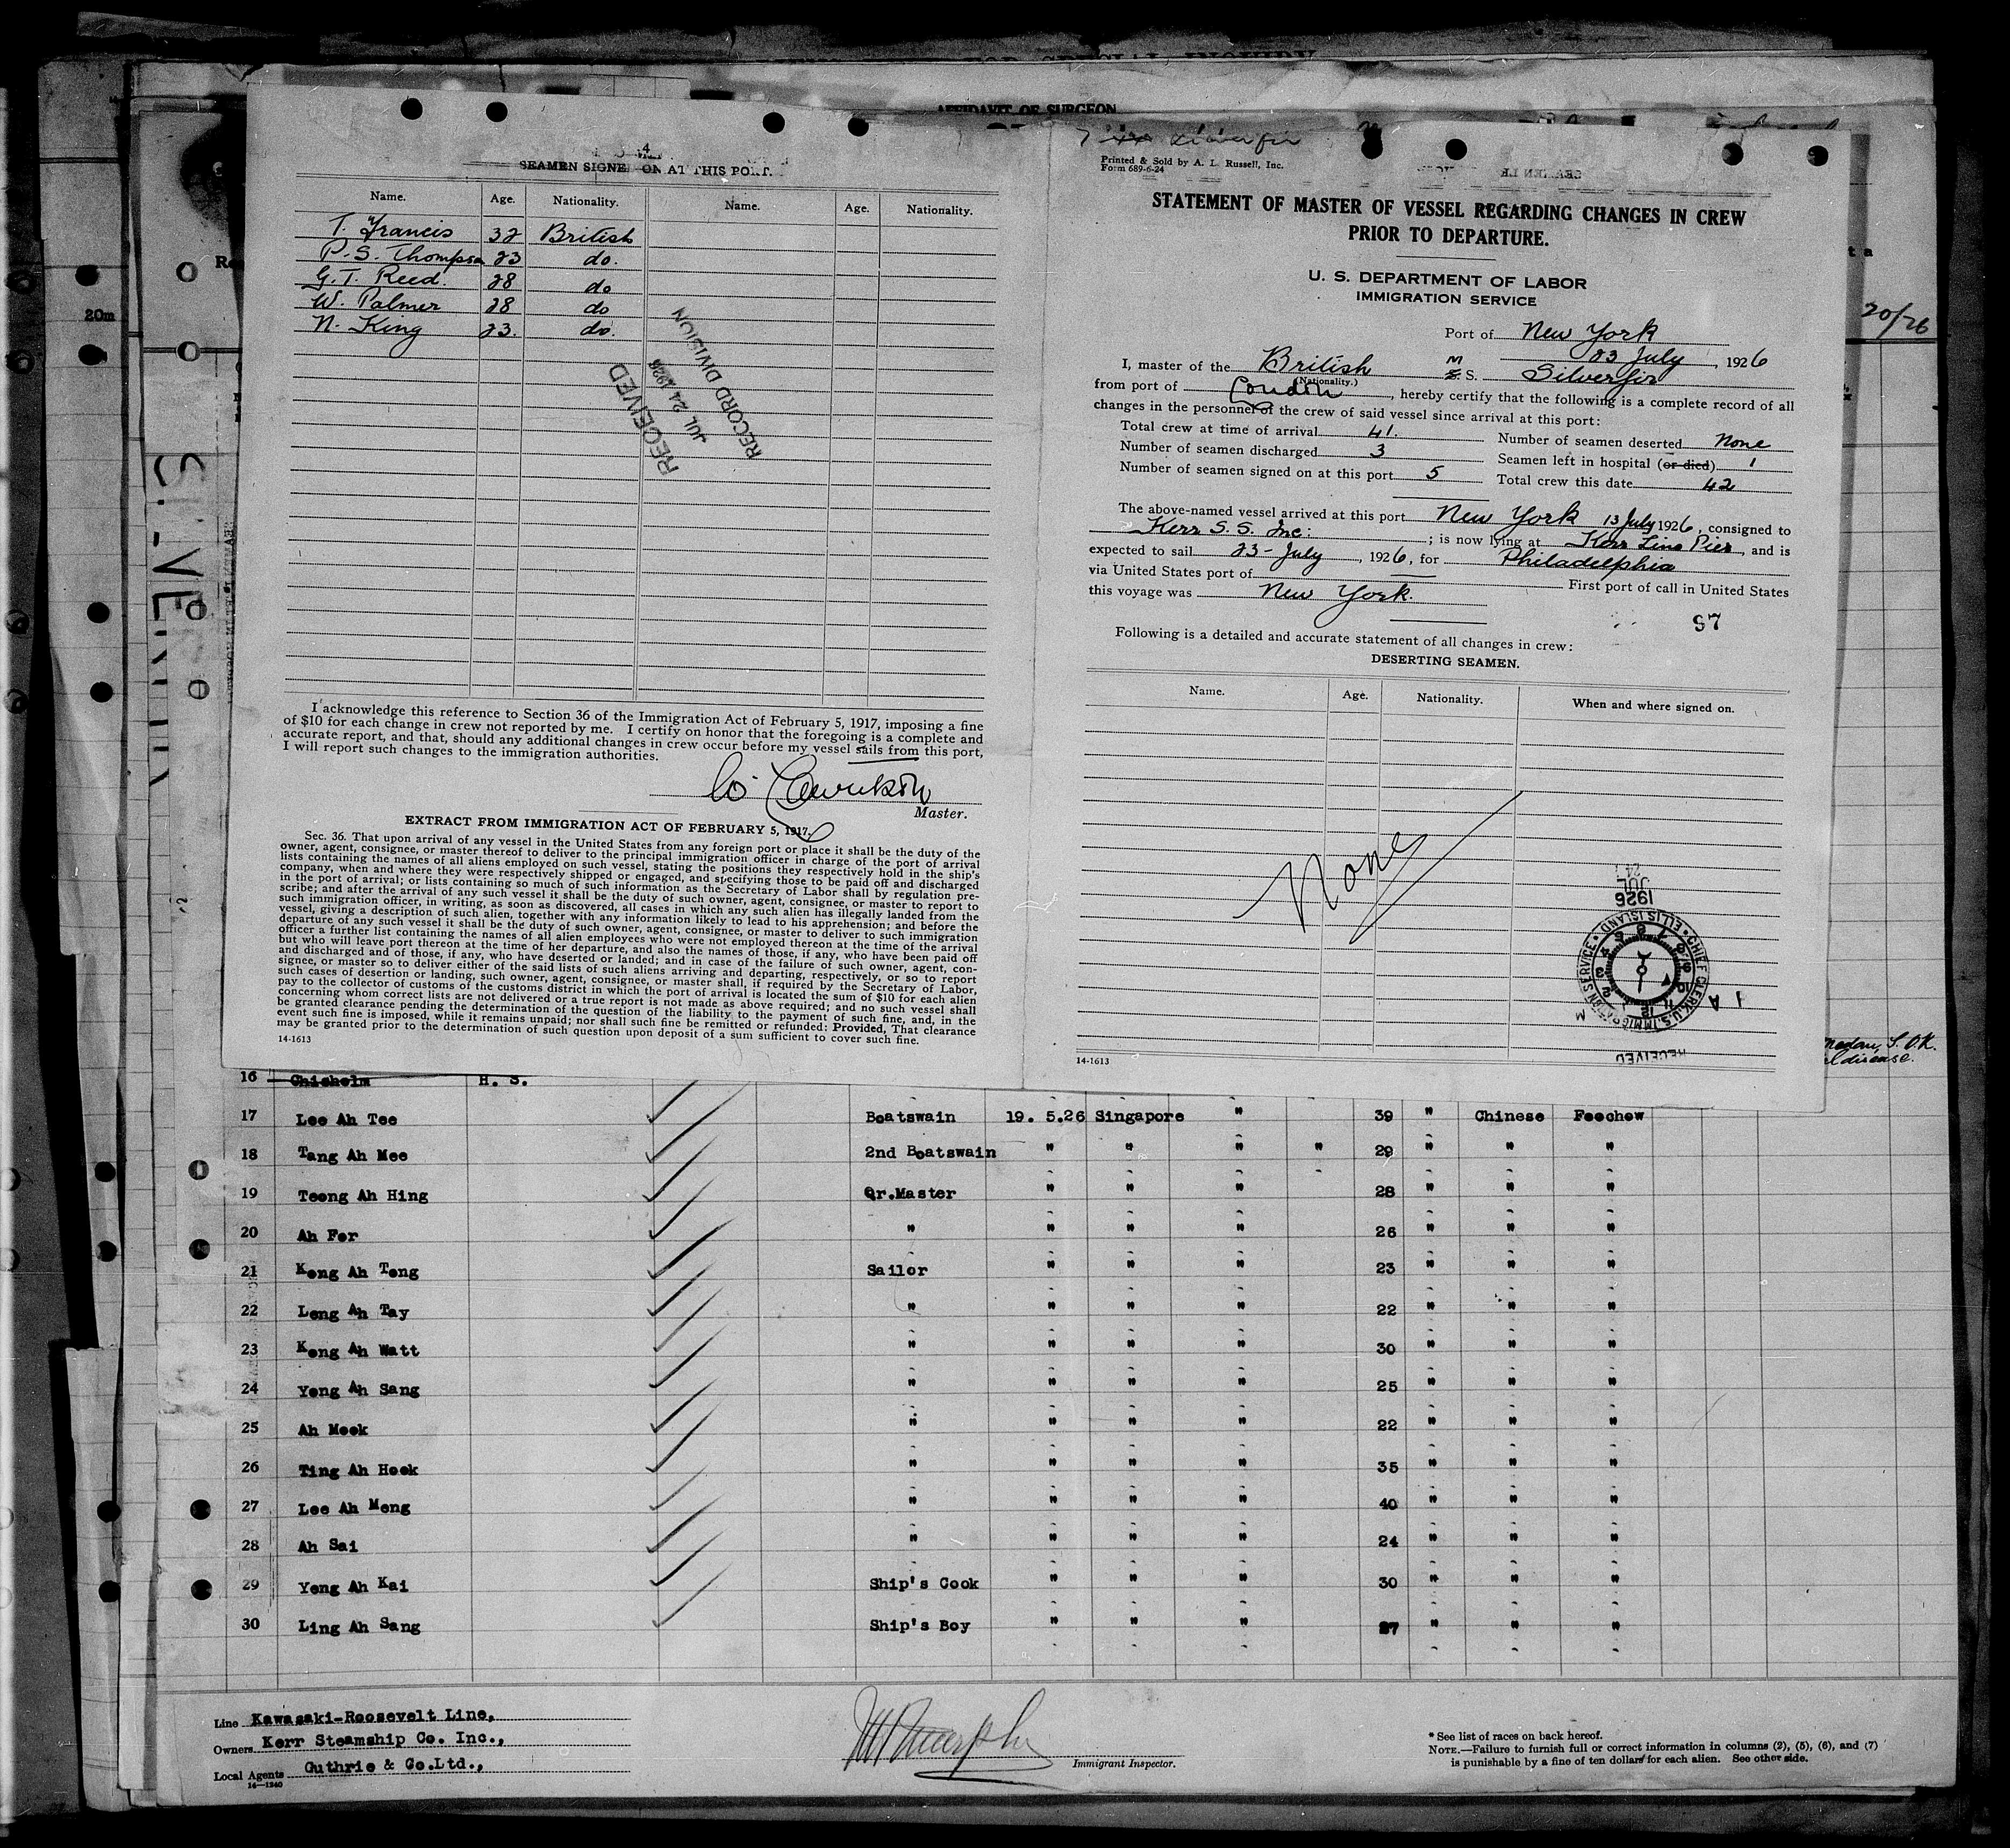 FOR SPECIAL INQUIRY
AFFIDAVIT OF SURGEON
4
SEAMEN SIGNED ON AT THIS PORT.
Name. Age. Nationality. Name. Age. Nationality.
T. Francis 32 British
P.S. Thompson 23 do.
G.T. Reed. 28 do
W. Palmer 28 do
N. King 23. do.
RECEIVED
JUL 24 1926
RECORD DIVISION
I acknowledge this reference to Section 36 of the Immigration Act of February 5, 1917, imposing a fine
of $10 for each change in crew not reported by me. I certify on honor that the foregoing is a complete and
accurate report, and that, should any additional changes in crew occur before my vessel sails from this port,
I will report such changes to the immigration authorities.
Master.
EXTRACT FROM IMMIGRATION ACT OF FEBRUARY 5, 1917.
Sec. 36. That upon arrival of any vessel in the United States from any foreign port or place it shall be the duty of the
owner, agent, consignee, or master thereof to deliver to the principal immigration officer in charge of the port of arrival
lists containing the names of all aliens employed on such vessel, stating the positions they respectively hold in the ship's
company, when and where they were respectively shipped or engaged, and specifying those to be paid off and discharged
in the port of arrival; or lists containing so much of such information as the Secretary of Labor shall by regulation pre-
scribe; and after the arrival of any such vessel it shall be the duty of such owner, agent, consignee, or master to report to
such immigration officer, in writing, as soon as discovered, all cases in which any such alien has illegally landed from the
vessel, giving a description of such alien, together with any information likely to lead to his apprehension; and before the
departure of any such vessel it shall be the duty of such owner, agent, consignee, or master to deliver to such immigration
officer a further list containing the names of all alien employees who were not employed thereon at the time of the arrival
but who will leave port thereon at the time of her departure, and also the names of those, if any, who have been paid off
and discharged and of those, if any, who have deserted or landed; and in case of the failure of such owner, agent, con-
signee, or master so to deliver either of the said lists of such aliens arriving and departing, respectively, or so to report
such cases of desertion or landing, such owner, agent, consignee, or master shall, if required by the Secretary of Labor,
pay to the collector of customs of the customs district in which the port of arrival is located the sum of $10 for each alien
concerning whom correct lists are not delivered or a true report is not made as above required; and no such vessel shall
be granted clearance pending the determination of the question of the liability to the payment of such fine, and, in the
event such fine is imposed, while it remains unpaid; nor shall such fine be remitted or refunded: Provided, That clearance
may be granted prior to the determination of such question upon deposit of a sum sufficient to cover such fine.
14-1613
Printed & Sold by A. L. Russell, Inc.
Form 689-6-24
STATEMENT OF MASTER OF VESSEL REGARDING CHANGES IN CREW
PRIOR TO DEPARTURE.
U. S. DEPARTMENT OF LABOR
IMMIGRATION SERVICE
Port of New York
23 July, 1926
I, master of the British M S. Silverfir
(Nationality.)
from port of London, hereby certify that the following is a complete record of all
changes in the personnel of the crew of said vessel since arrival at this port:
Total crew at time of arrival 41. Number of seamen deserted None
Number of seamen discharged 3 Seamen left in hospital (or died) 1
Number of seamen signed on at this port 5 Total crew this date 42
The above-named vessel arrived at this port New York 13 July 1926, consigned to
Kerr S. S. Inc: ; is now lying at Kerr Line Pier, and is
expected to sail 23-July, 1926, for Philadelphia
via United States port of First port of call in United States
this voyage was New York.
97
Following is a detailed and accurate statement of all changes in crew:
DESERTING SEAMEN.
Name. Age. Nationality. When and where signed on.
None
1926
JUL
24
CHIEF CLERK, U.S. IMMIGRATION SERVICE • ELLIS ISLAND
RECEIVED
14-1613
20m
20/26
SILVERFIR
disease.
16 Chisholm H. S.
17 Lee Ah Tee Boatswain 19. 5.26 Singapore " 39 " Chinese Foochow
18 Tang Ah Mee 2nd Boatswain " " " " 29 " " "
19 Teong Ah Hing Qr.Master " " " 28 " " "
20 Ah For " " " " 26 " " "
21 Kong Ah Tong Sailor " " " 23 " " "
22 Leng Ah Tay " " " " 22 " " "
23 Kong Ah Watt " " " " 30 " " "
24 Yong Ah Sang " " " " 25 " " "
25 Ah Mook " " " " 22 " " "
26 Ting Ah Hook " " " " 35 " " "
27 Lee Ah Mong " " " " 40 " " "
28 Ah Sai " " " " 24 " " "
29 Yong Ah Kai Ship's Cook " " " 30 " " "
30 Ling Ah Sang Ship's Boy " " " 27 " " "
Line Kawasaki-Roosevelt Line,
Owners Kerr Steamship Co. Inc.,
Local Agents Guthrie & Co.Ltd.,
14-1240
Immigrant Inspector.
* See list of races on back hereof.
NOTE.—Failure to furnish full or correct information in columns (2), (5), (6), and (7)
is punishable by a fine of ten dollars for each alien. See other side.